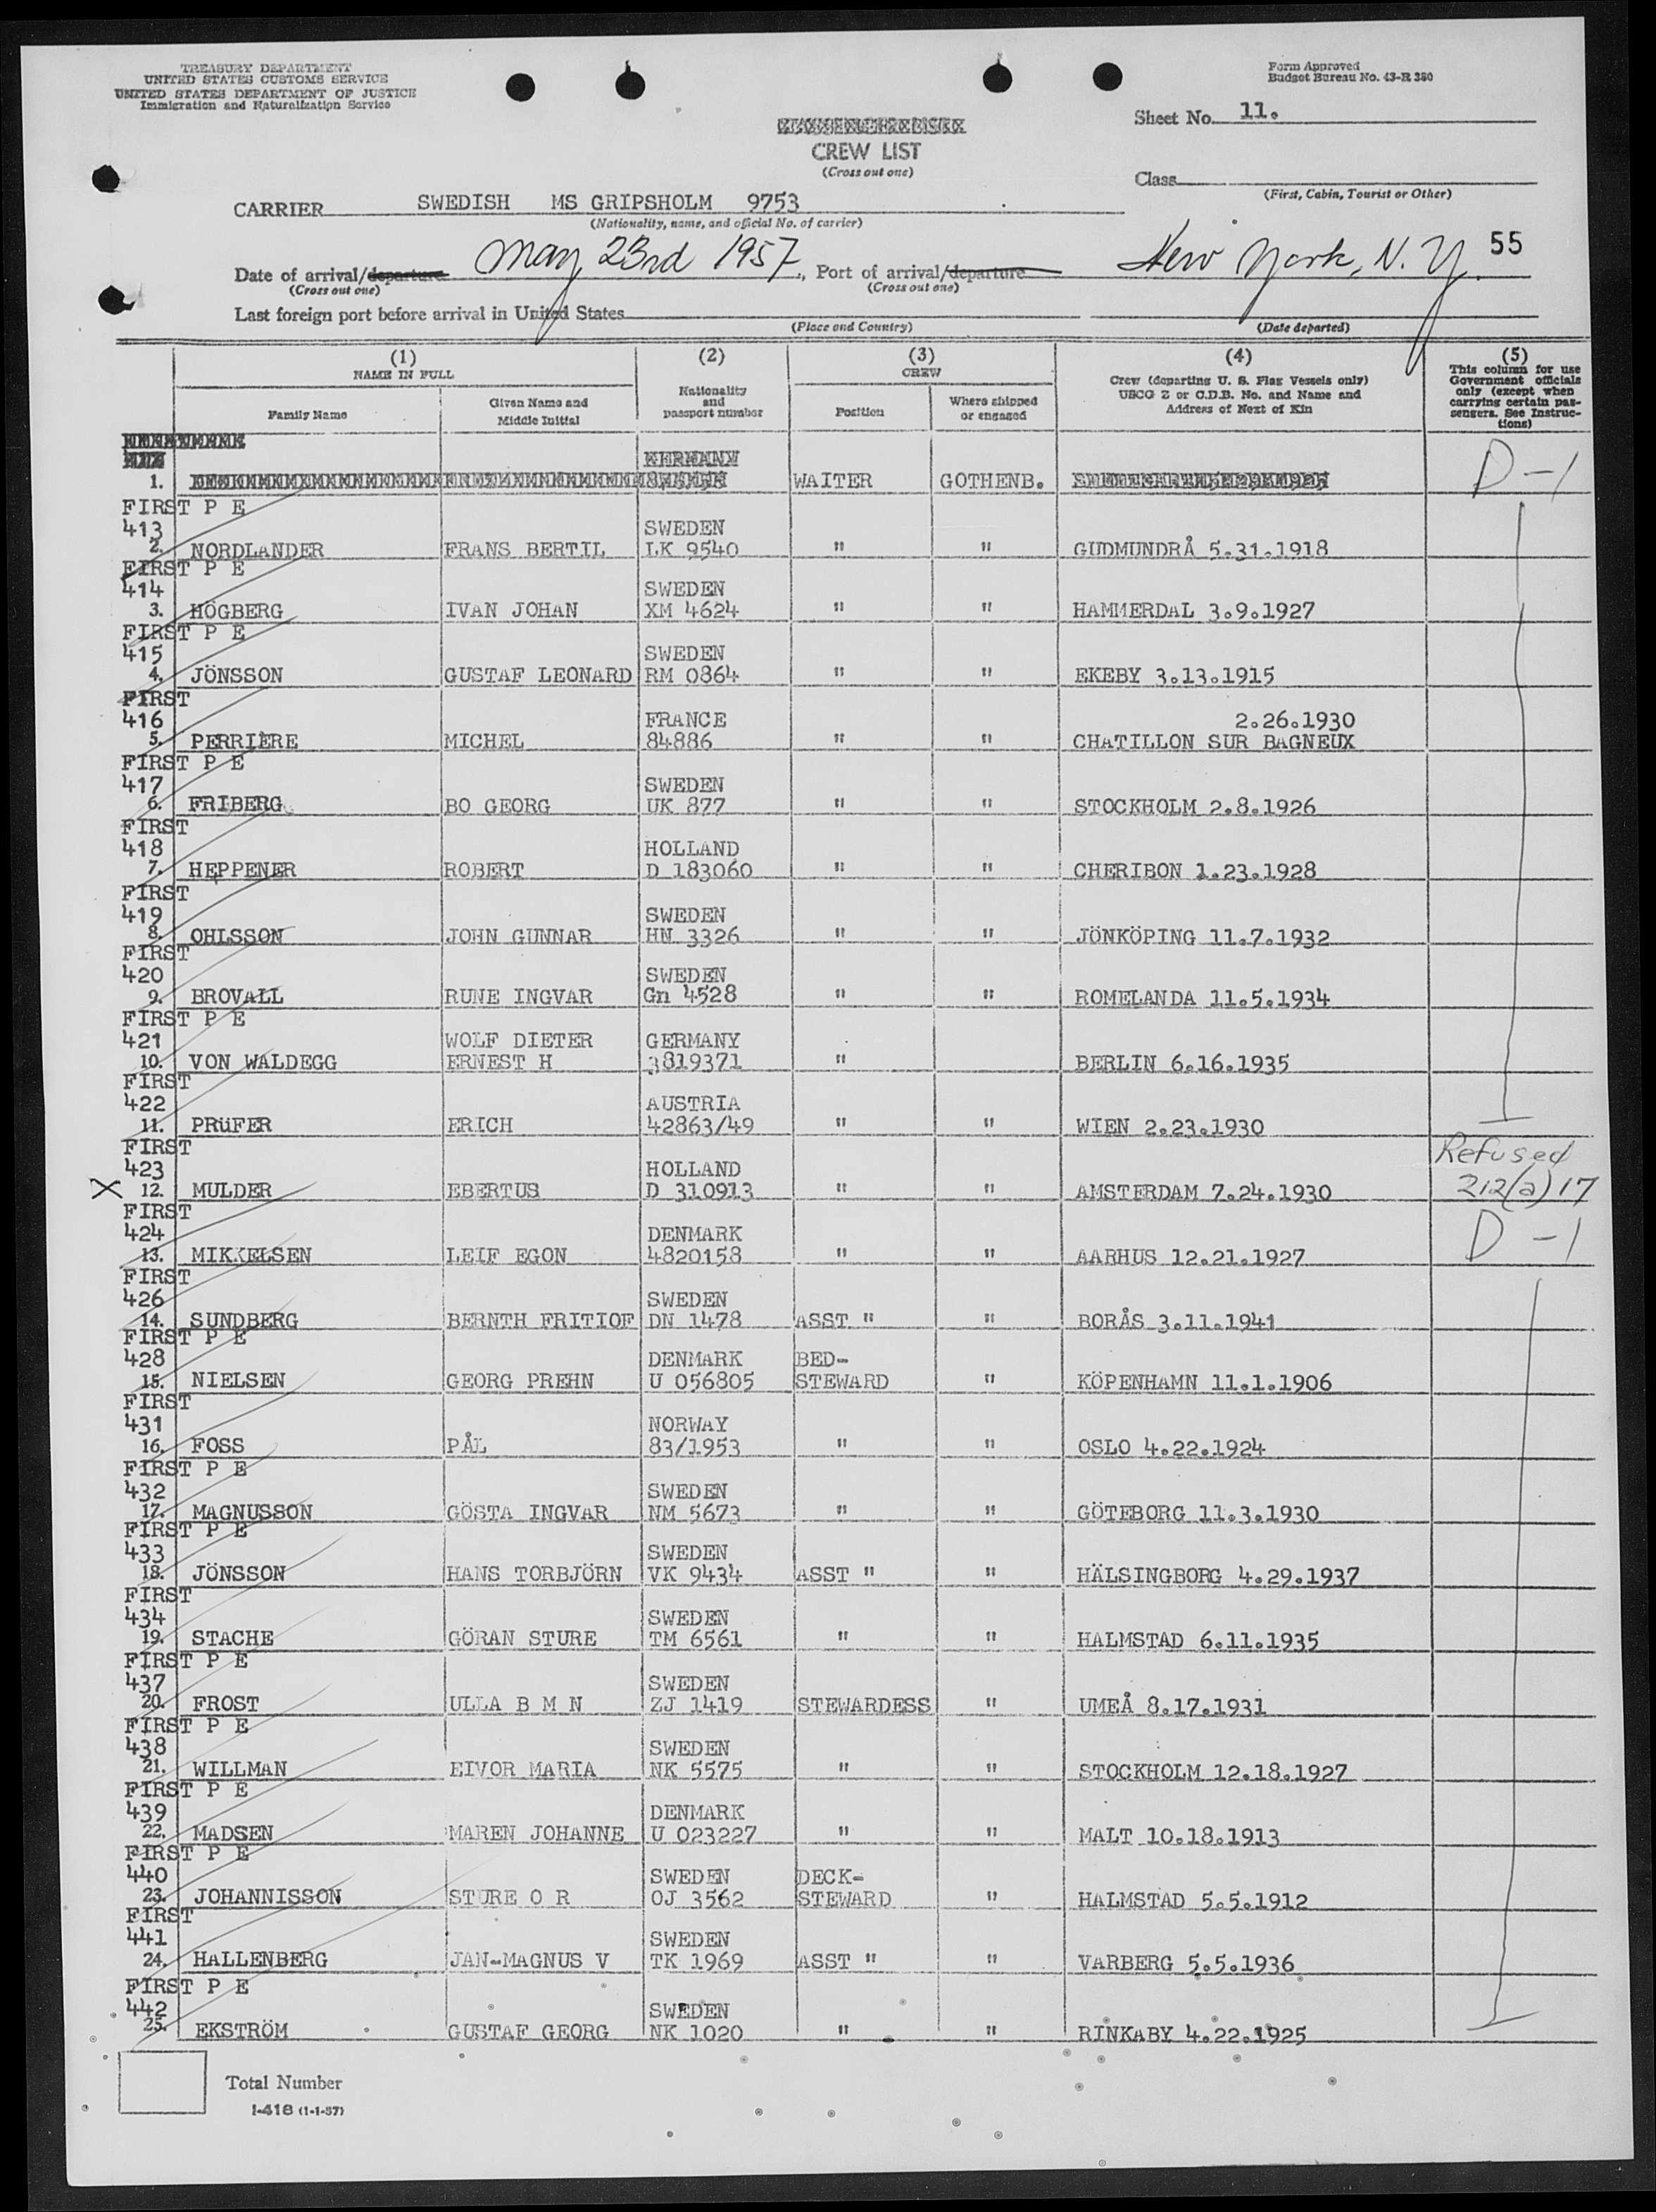 TREASURY DEPARTMENT
UNITED STATES CUSTOMS SERVICE
UNITED STATES DEPARTMENT OF JUSTICE
Immigration and Naturalization Service
Form Approved
Budget Bureau No. 43-R 380
Sheet No. 11.
CREW LIST
(Cross out one)
Class
(First, Cabin, Tourist or Other)
CARRIER SWEDISH MS GRIPSHOLM 9753
(Nationality, name, and official No. of carrier)
Date of arrival/departure May 23rd 1957, Port of arrival/departure New York, N.Y. 55
(Cross out one) (Cross out one)
Last foreign port before arrival in United States
(Place and Country) (Date departed)
(1) (2) (3) (4) (5)
NAME IN FULL
Family Name
Given Name and Middle Initial
Nationality and passport number
CREW
Position
Where shipped or engaged
Crew (departing U. S. Flag Vessels only) USCG Z or C.D.B. No. and Name and Address of Next of Kin
This column for use Government officials only (except when carrying certain passengers. See Instructions)
1. WAITER GOTHENB. D-1
FIRST P E
413 SWEDEN
2. NORDLANDER FRANS BERTIL LK 9540 " " GUDMUNDRÅ 5.31.1918
FIRST P E
414 SWEDEN
3. HÖGBERG IVAN JOHAN XM 4624 " " HAMMERDAL 3.9.1927
FIRST P E
415 SWEDEN
4. JÖNSSON GUSTAF LEONARD RM 0864 " " EKEBY 3.13.1915
FIRST
416 FRANCE 2.26.1930
5. PERRIÈRE MICHEL 84886 " " CHATILLON SUR BAGNEUX
FIRST P E
417 SWEDEN
6. FRIBERG BO GEORG UK 877 " " STOCKHOLM 2.8.1926
FIRST
418 HOLLAND
7. HEPPENER ROBERT D 183060 " " CHERIBON 1.23.1928
FIRST
419 SWEDEN
8. OHLSSON JOHN GUNNAR HN 3326 " " JÖNKÖPING 11.7.1932
FIRST
420 SWEDEN
9. BROVALL RUNE INGVAR Gn 4528 " " ROMELANDA 11.5.1934
FIRST P E
421 WOLF DIETER GERMANY
10. VON WALDEGG ERNEST H 3819371 " BERLIN 6.16.1935
FIRST
422 AUSTRIA
11. PRüFER ERICH 42863/49 " " WIEN 2.23.1930
FIRST Refused
423 HOLLAND
X 12. MULDER EBERTUS D 310913 " " AMSTERDAM 7.24.1930 212(a)17
FIRST
424 DENMARK D-1
13. MIKKELSEN LEIF EGON 4820158 " " AARHUS 12.21.1927
FIRST
426 SWEDEN
14. SUNDBERG BERNTH FRITIOF DN 1478 ASST " " BORÅS 3.11.1941
FIRST P E
428 DENMARK BED-
15. NIELSEN GEORG PREHN U 056805 STEWARD " KÖPENHAMN 11.1.1906
FIRST
431 NORWAY
16. FOSS PÅL 83/1953 " " OSLO 4.22.1924
FIRST P E
432 SWEDEN
17. MAGNUSSON GÖSTA INGVAR NM 5673 " " GÖTEBORG 11.3.1930
FIRST P E
433 SWEDEN
18. JÖNSSON HANS TORBJÖRN VK 9434 ASST " " HÄLSINGBORG 4.29.1937
FIRST
434 SWEDEN
19. STACHE GÖRAN STURE TM 6561 " " HALMSTAD 6.11.1935
FIRST P E
437 SWEDEN
20. FROST ULLA B M N ZJ 1419 STEWARDESS " UMEÅ 8.17.1931
FIRST P E
438 SWEDEN
21. WILLMAN EIVOR MARIA NK 5575 " " STOCKHOLM 12.18.1927
FIRST P E
439 DENMARK
22. MADSEN MAREN JOHANNE U 023227 " " MALT 10.18.1913
FIRST P E
440 SWEDEN DECK-
23. JOHANNISSON STURE O R OJ 3562 STEWARD " HALMSTAD 5.5.1912
FIRST
441 SWEDEN
24. HALLENBERG JAN-MAGNUS V TK 1969 ASST " " VARBERG 5.5.1936
FIRST P E
442 SWEDEN
25. EKSTRÖM GUSTAF GEORG NK 1020 " " RINKABY 4.22.1925
Total Number
I-418 (1-1-57)